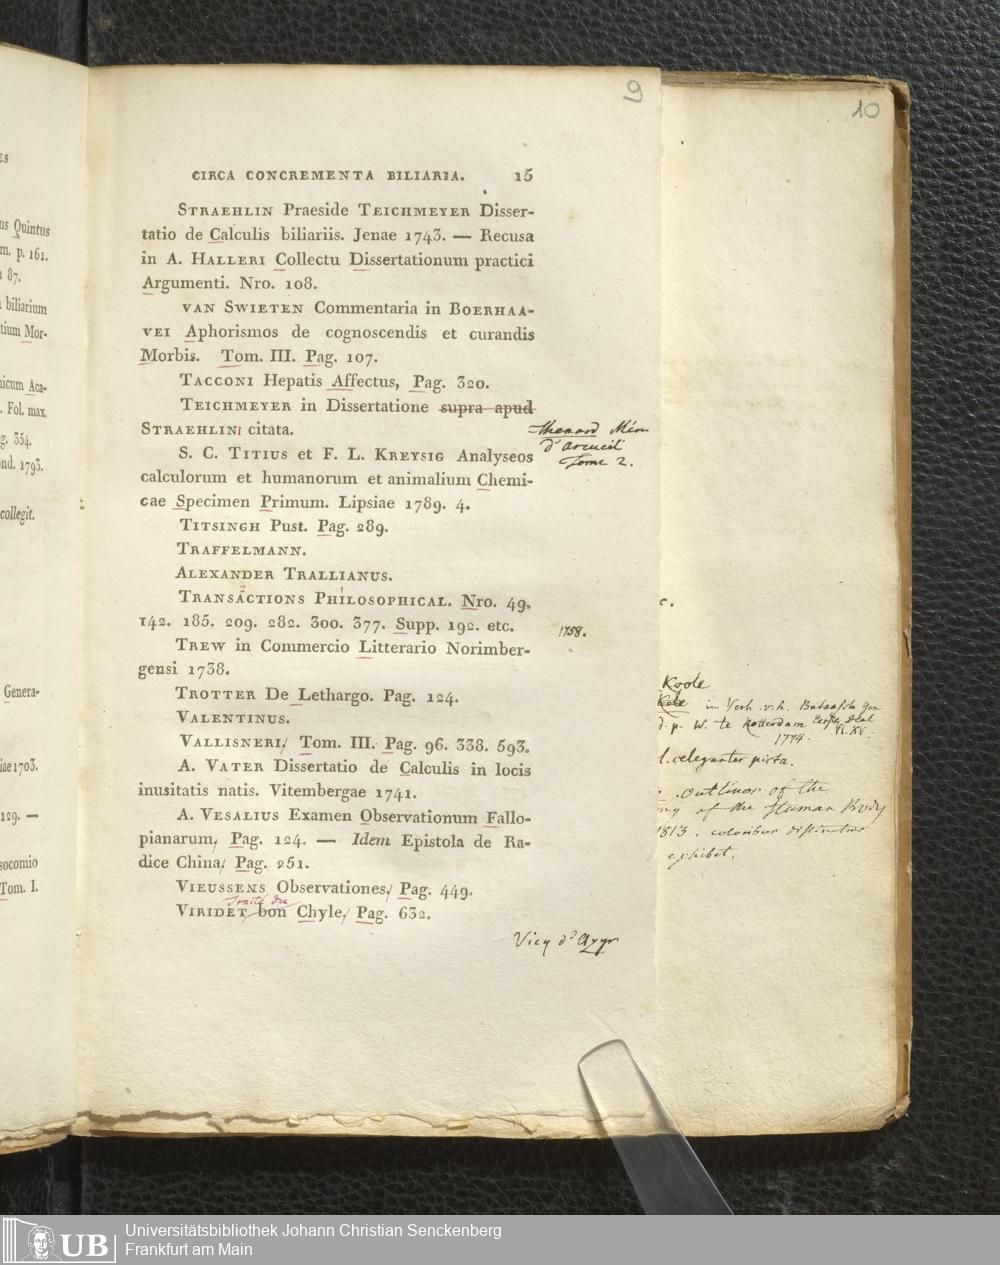 9
10
CIRCA CONCREMENTA BILIARIA. 15
STRAEHLIN Praeside TEICHMEYER Disser-
tatio de Calculis biliariis. Jenae 1743. — Recusa
in A. HALLERI Collectu Dissertationum practici
Argumenti. Nro. 108.
VAN SWIETEN Commentaria in BOERHAA-
VEI Aphorismos de cognoscendis et curandis
Morbis. Tom. III. Pag. 107.
TACCONI Hepatis Affectus, Pag. 320.
TEICHMEYER in Dissertatione supra apud
STRAEHLINI citata.
Thenard Mém
d'Arcueil
Tome 2.
S. C. TITIUS et F. L. KREYSIG Analyseos
calculorum et humanorum et animalium Chemi-
cae Specimen Primum. Lipsiae 1789. 4.
TITSINGH Pust. Pag. 289.
TRAFFELMANN.
ALEXANDER TRALLIANUS.
TRANSACTIONS PHILOSOPHICAL. Nro. 49.
142. 185. 209. 282. 300. 377. Supp. 192. etc.
1758.
TREW in Commercio Litterario Norimber-
gensi 1738.
TROTTER De Lethargo. Pag. 124.
VALENTINUS.
VALLISNERI, Tom. III. Pag. 96. 338. 593.
A. VATER Dissertatio de Calculis in locis
inusitatis natis. Vitembergae 1741.
A. VESALIUS Examen Observationum Fallo-
pianarum, Pag. 124. — Idem Epistola de Ra-
dice China, Pag. 251.
VIEUSSENS Observationes, Pag. 449.
Traité du
VIRIDET bon Chyle, Pag. 632.
Vicq d'Azyr
ns Quintus
m. p. 161.
87.
biliarium
tium Mor-
nicum Aca-
Fol. max.
g. 354.
nd. 1793.
collegit.
Genera-
iae 1703.
129. —
socomio
Tom. I.
c.
Koole
in Verh. v. h. Bataafsch Gen
d. p. W. te Rotterdam
1774. VI. XV.
l. eleganter picta.
Outlines of the
ny of the Human Body
1813. coloribus distinctus
exhibet.
Universitätsbibliothek Johann Christian Senckenberg
Frankfurt am Main
UB